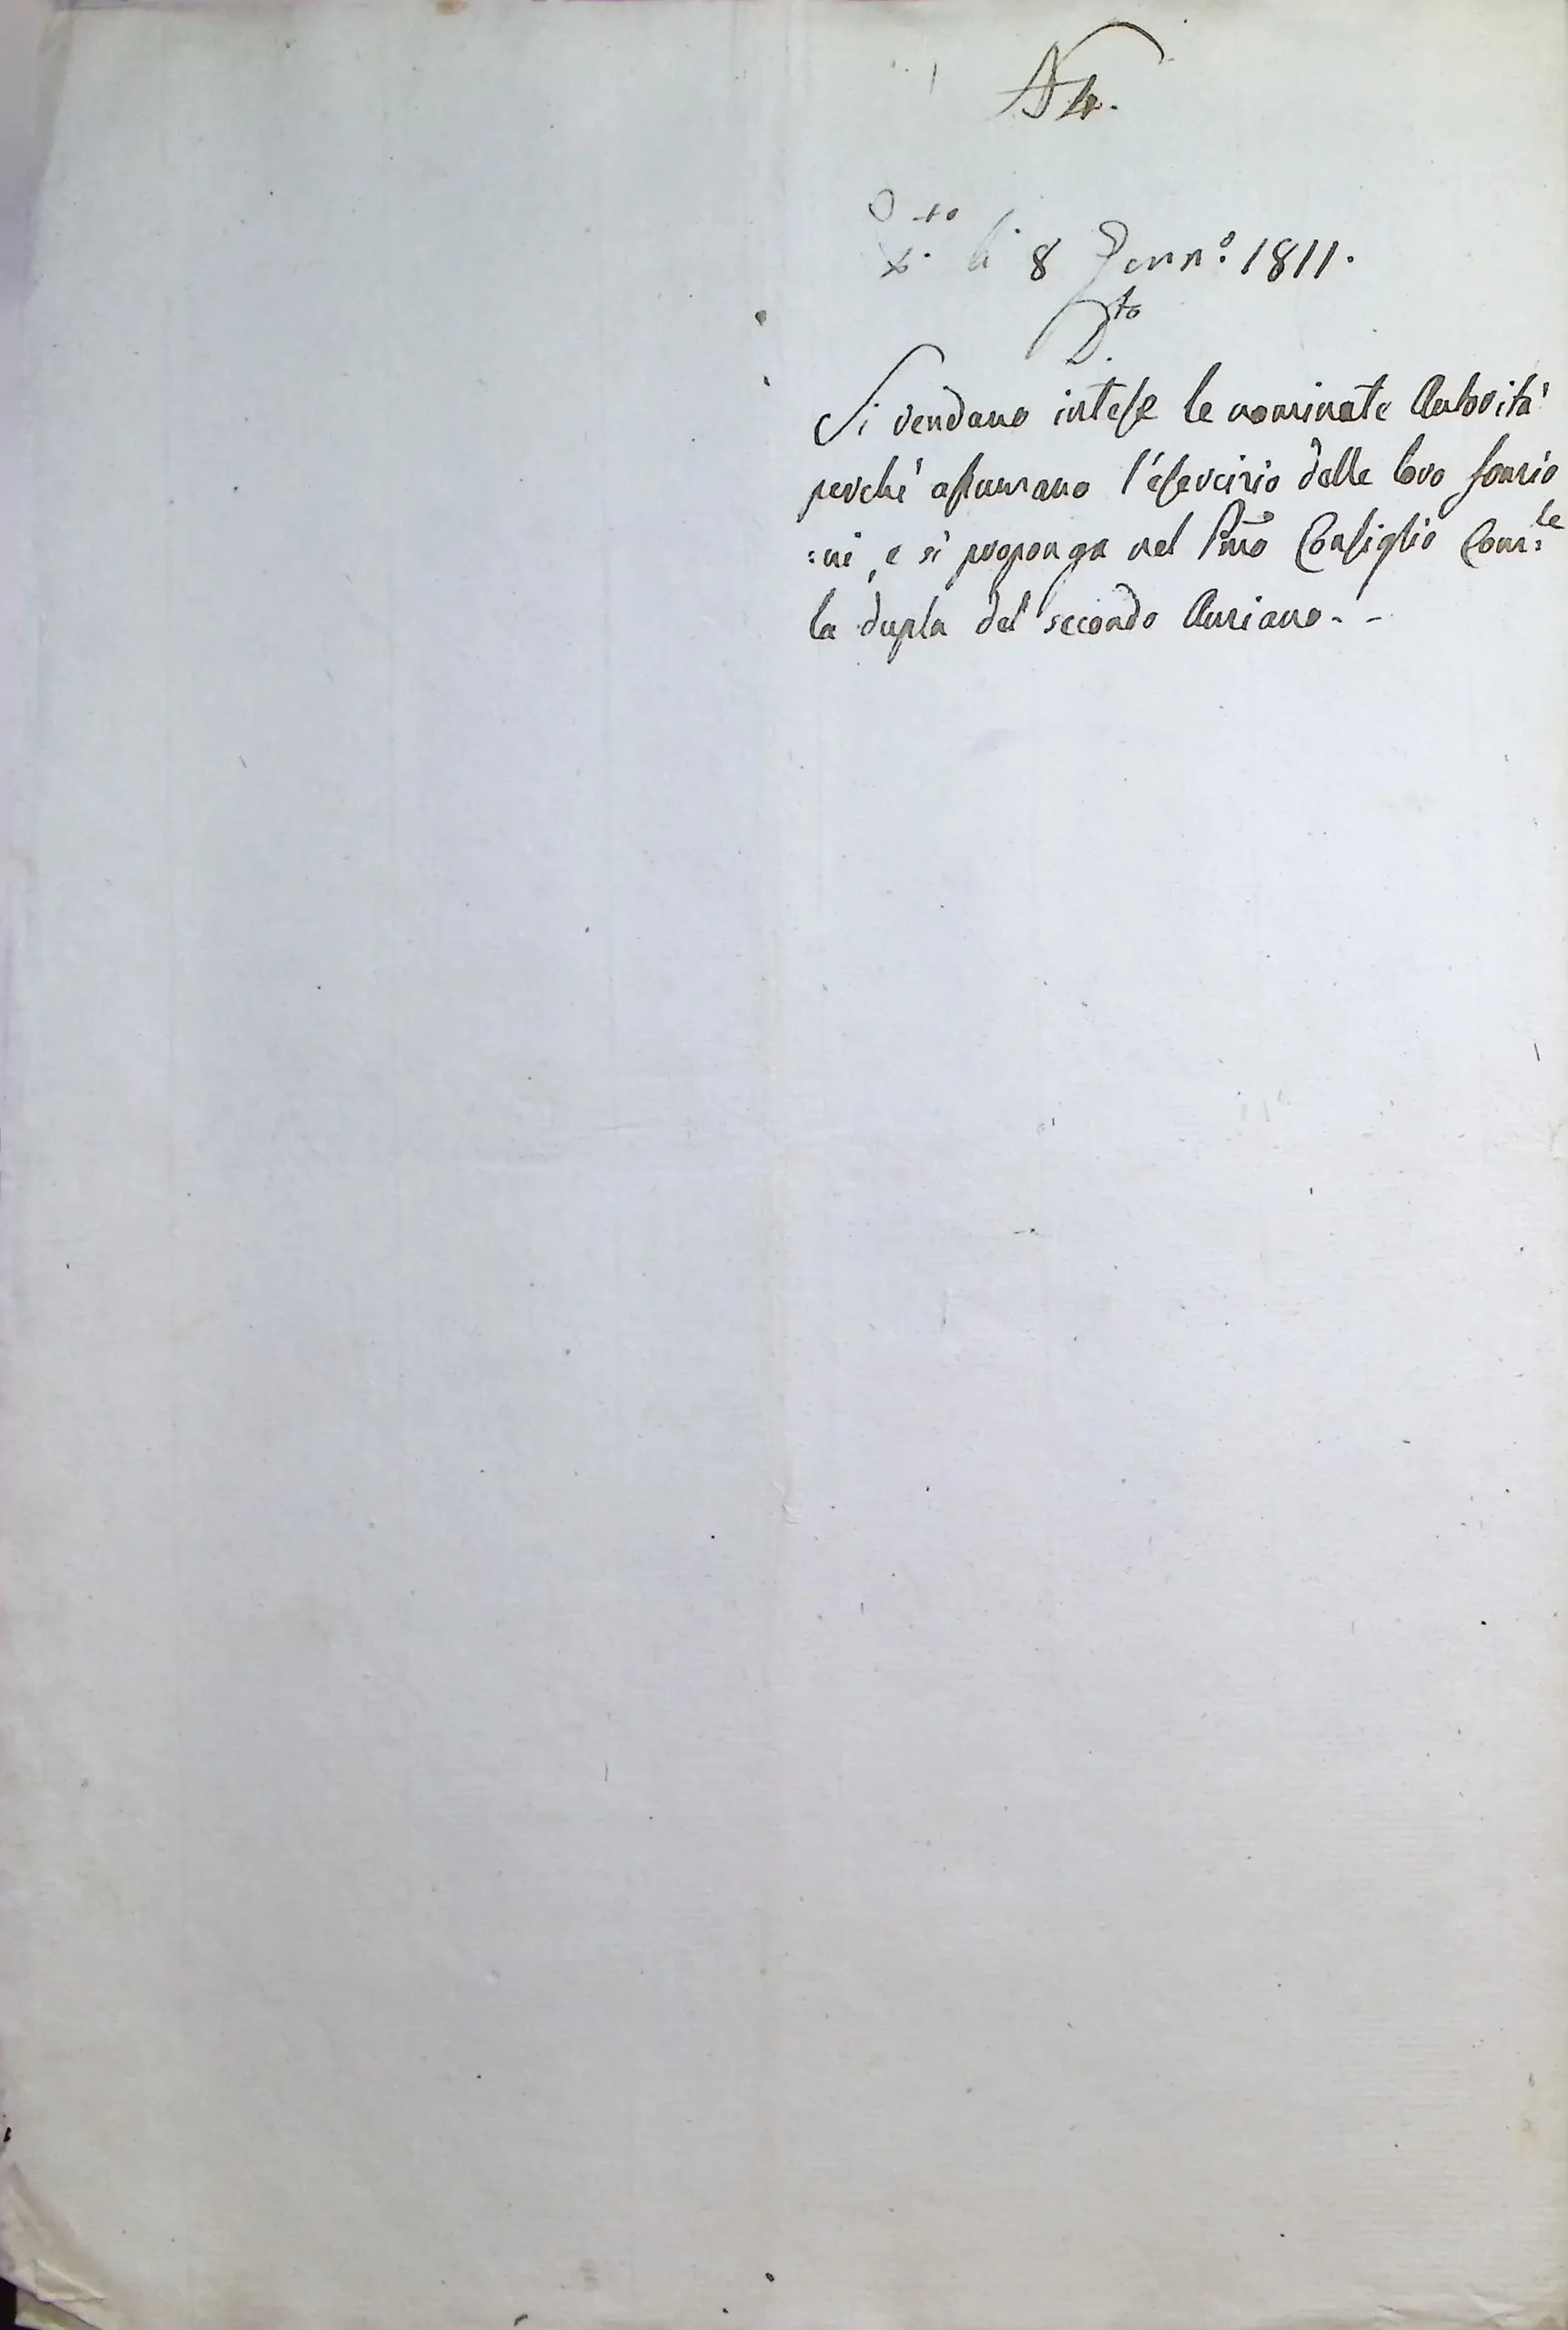 N 4.
li 8 Genn.º 1811.
D.to
Si rendano intese le nominate Autorità
perchè assumano l'esercizio delle loro fonzio
:ni, e si proponga nel Pmo Consiglio Com:le
la dupla del secondo Anziano. -